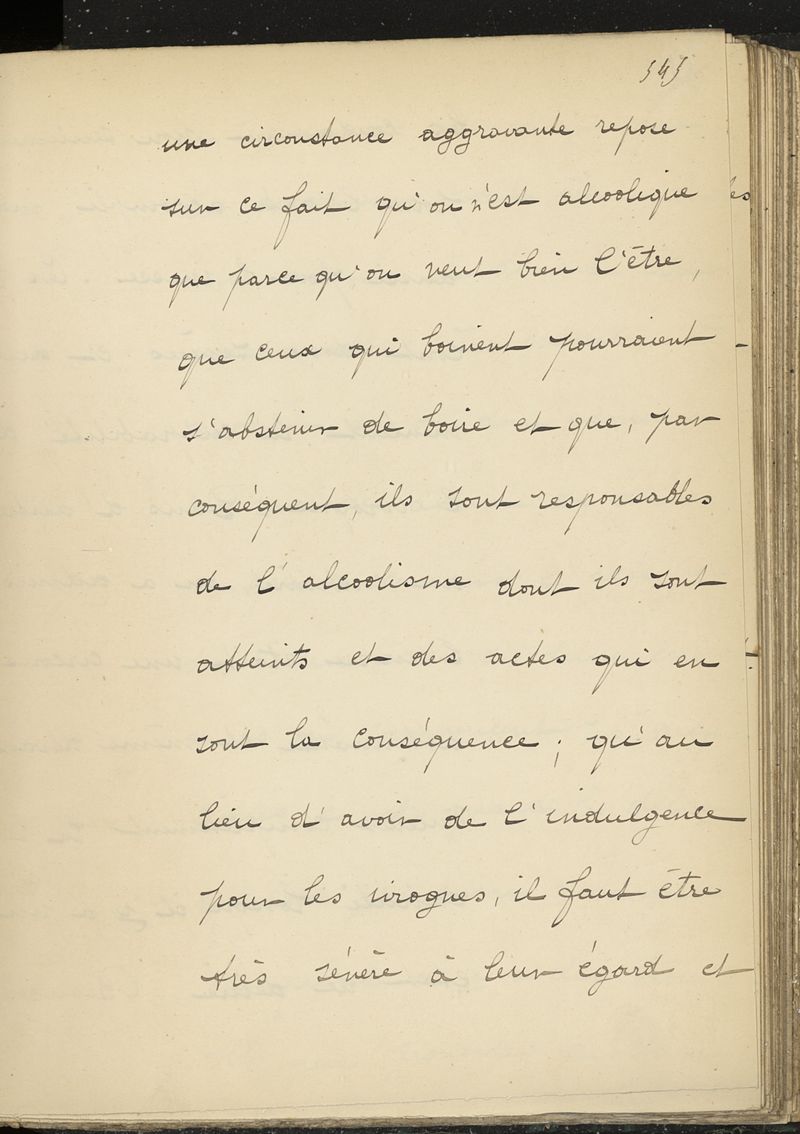 545
une circonstance aggravante repose
sur ce fait qu'on n'est alcoolique
que parce qu'on veut bien l'être,
que ceux qui boivent pourraient
s'abstenir de boire et que, par
conséquent, ils sont responsables
de l'alcoolisme dont ils sont
atteints et des actes qui en
sont la conséquence ; qu'au
lieu d'avoir de l'indulgence
pour les ivrognes, il faut être
très sévère à leur égard et